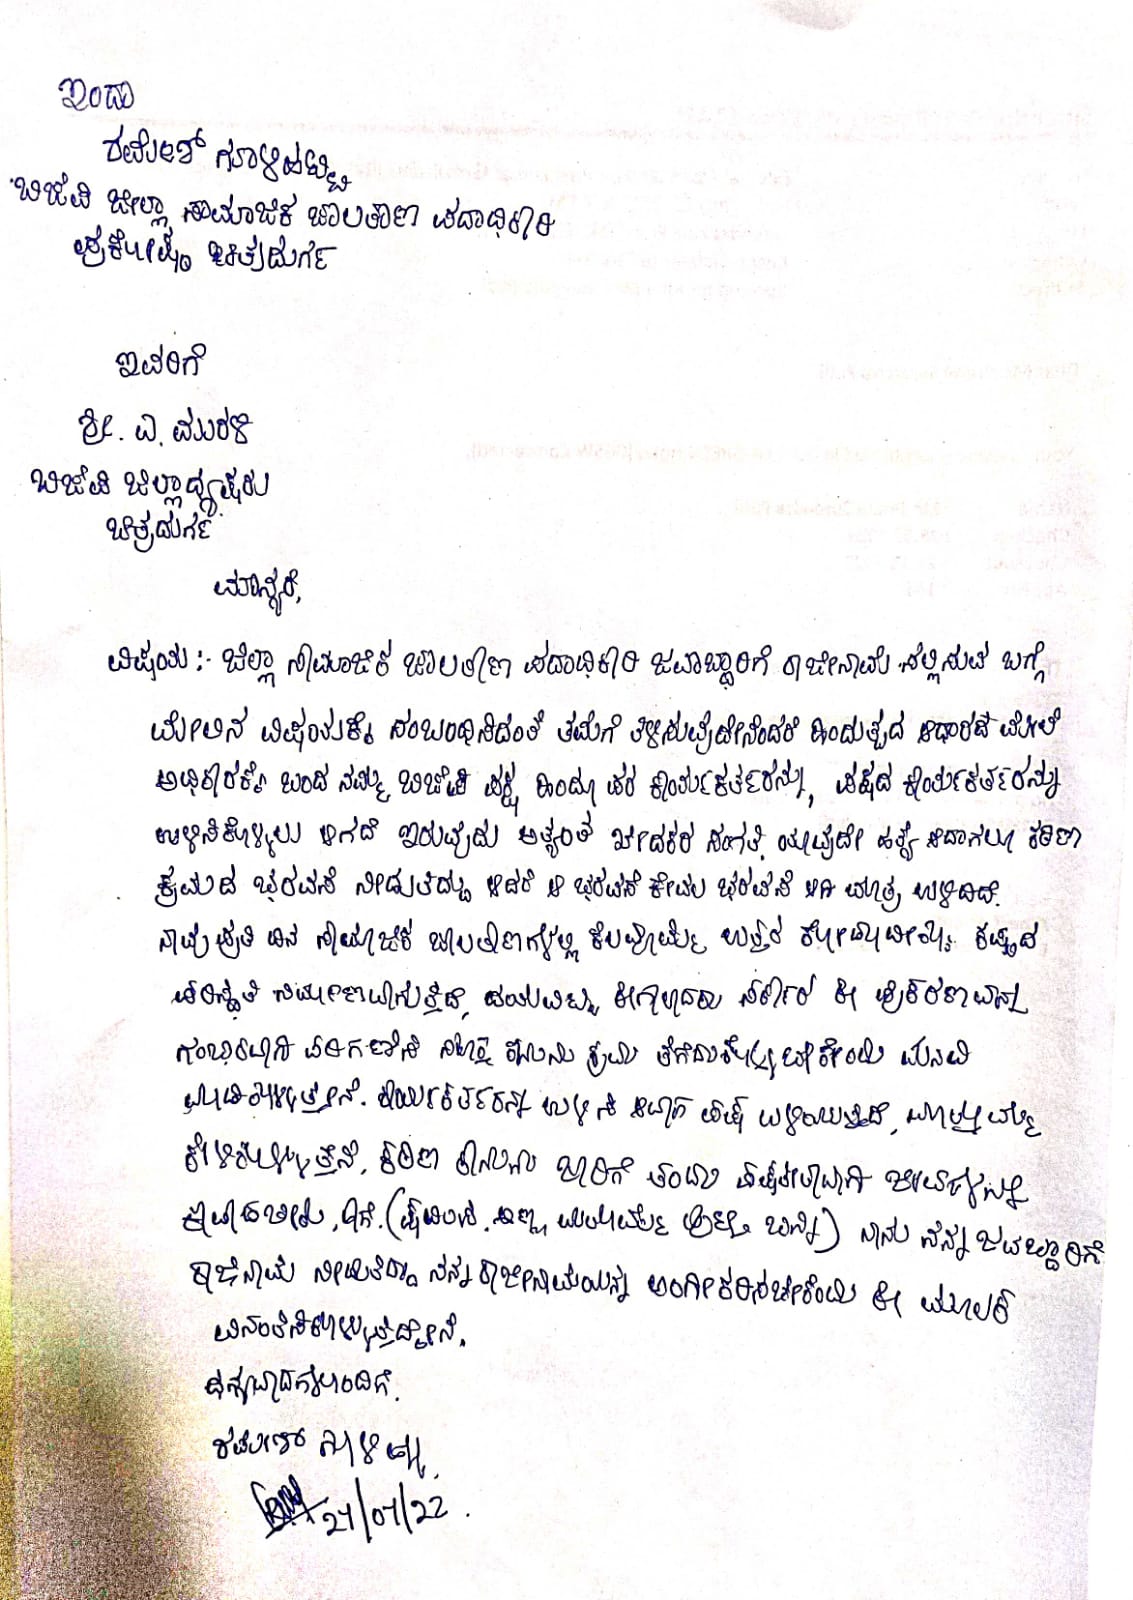 ಇಂದಾ
ರಮೇಶ್ ಗೂಳಿಹಟ್ಟಿ
ಬಿಜೆಪಿ ಜೀಲ್ಲಾ ಸಾಮಾಜಿಕ ಜಾಲತಾಣ ಪದಾಧಿಕಾರಿ
ಪ್ರಕೋಷ್ಠ ಚಿತ್ರದುರ್ಗ
ಇವರಿಗೆ
ಶ್ರೀ. ಎ. ಮುರಳಿ
ಬಿಜೆಪಿ ಜಿಲ್ಲಾಧ್ಯಕ್ಷರು
ಚಿತ್ರದುರ್ಗ
ಮಾನ್ಯರೆ,
ವಿಷಯ :- ಜಿಲ್ಲಾ ಸಾಮಾಜಿಕ ಜಾಲತಾಣ ಪದಾಧಿಕಾರಿ ಜವಾಬ್ದಾರಿಗೆ ರಾಜೀನಾಮೆ ಸಲ್ಲಿಸುವ ಬಗ್ಗೆ
ಮೇಲಿನ ವಿಷಯಕ್ಕೆ ಸಂಬಂಧಿಸಿದಂತೆ ತಮಗೆ ತಿಳಿಸುವುದೇನೆಂದರೆ ಹಿಂದುತ್ವದ ಆಧಾರದ ಮೇಲೆ
ಅಧಿಕಾರಕ್ಕೆ ಬಂದ ನಮ್ಮ ಬಿಜೆಪಿ ಪಕ್ಷ ಹಿಂದೂ ಪರ ಕಾರ್ಯಕರ್ತರನ್ನು, ಪಕ್ಷದ ಕಾರ್ಯಕರ್ತರನ್ನು
ಉಳಿಸಿಕೊಳ್ಳಲು ಆಗದೆ ಇರುವುದು ಅತ್ಯಂತ ಖೇದಕರ ಸಂಗತಿ. ಯಾವುದೇ ಹತ್ಯೆ ಆದಾಗಲೂ ಕಠಿಣ
ಕ್ರಮದ ಭರವಸೆ ನೀಡುತಿದ್ದು ಆದರೆ ಆ ಭರವಸೆ ಕೇವಲ ಭರವಸೆ ಆಗಿ ಮಾತ್ರ ಉಳಿದಿದೆ.
ನಾವು ಪ್ರತಿ ದಿನ ಸಾಮಾಜಿಕ ಜಾಲತಾಣಗಳಲ್ಲಿ ಕೆಲವೊಮ್ಮೆ ಉತ್ತರ ಕಷ್ಟದ
ಪರಿಸ್ಥಿತಿ ನಿರ್ಮಾಣವಾಗುತ್ತಿದೆ, ದಯವಿಟ್ಟು ಈಗಲಾದರು ಸರ್ಕಾರ ಈ ಪ್ರಕರಣವನ್ನು
ಗಂಭೀರವಾಗಿ ಪರಿಗಣಿಸಿ ಕಾನೂನು ಕ್ರಮ ತೆಗೆದುಕೊಳ್ಳಬೇಕೆಂದು ಮನವಿ
ಮಾಡಿಕೊಳ್ಳುತ್ತೇನೆ. ಕಾರ್ಯಕರ್ತರನ್ನು ಉಳಿಸಿ ಆವಾಗ ಪಕ್ಷ ಉಳಿಯುತ್ತದೆ, ಮತ್ತೊಮ್ಮೆ
ಕೇಳಿಕೊಳ್ಳುತ್ತೇನೆ, ಕಠಿಣ ಕಾನೂನು ಜಾರಿಗೆ ತಂದು ಜೀವಗಳನ್ನು
ನಾನು ನನ್ನ ಜವಬ್ದಾರಿಗೆ
ರಾಜಿನಾಮೆ ನೀಡುತಿದ್ದು ನನ್ನ ರಾಜೀನಾಮೆಯನ್ನು ಅಂಗೀಕರಿಸಬೇಕೆಂದು ಈ ಮೂಲಕ
ವಿನಂತಿಸಿಕೊಳ್ಳುತ್ತಿದ್ದೇನೆ.
ಧನ್ಯವಾದಗಳೊಂದಿಗೆ.
ರಮೇಶ್ ಗೂಳಿಹಟ್ಟಿ
27/07/22.